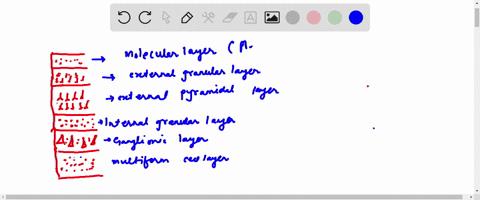 molecular layer (
external granular layer
external pyramidal layer
Internal granular layer
Ganglionic layer
multiform layer